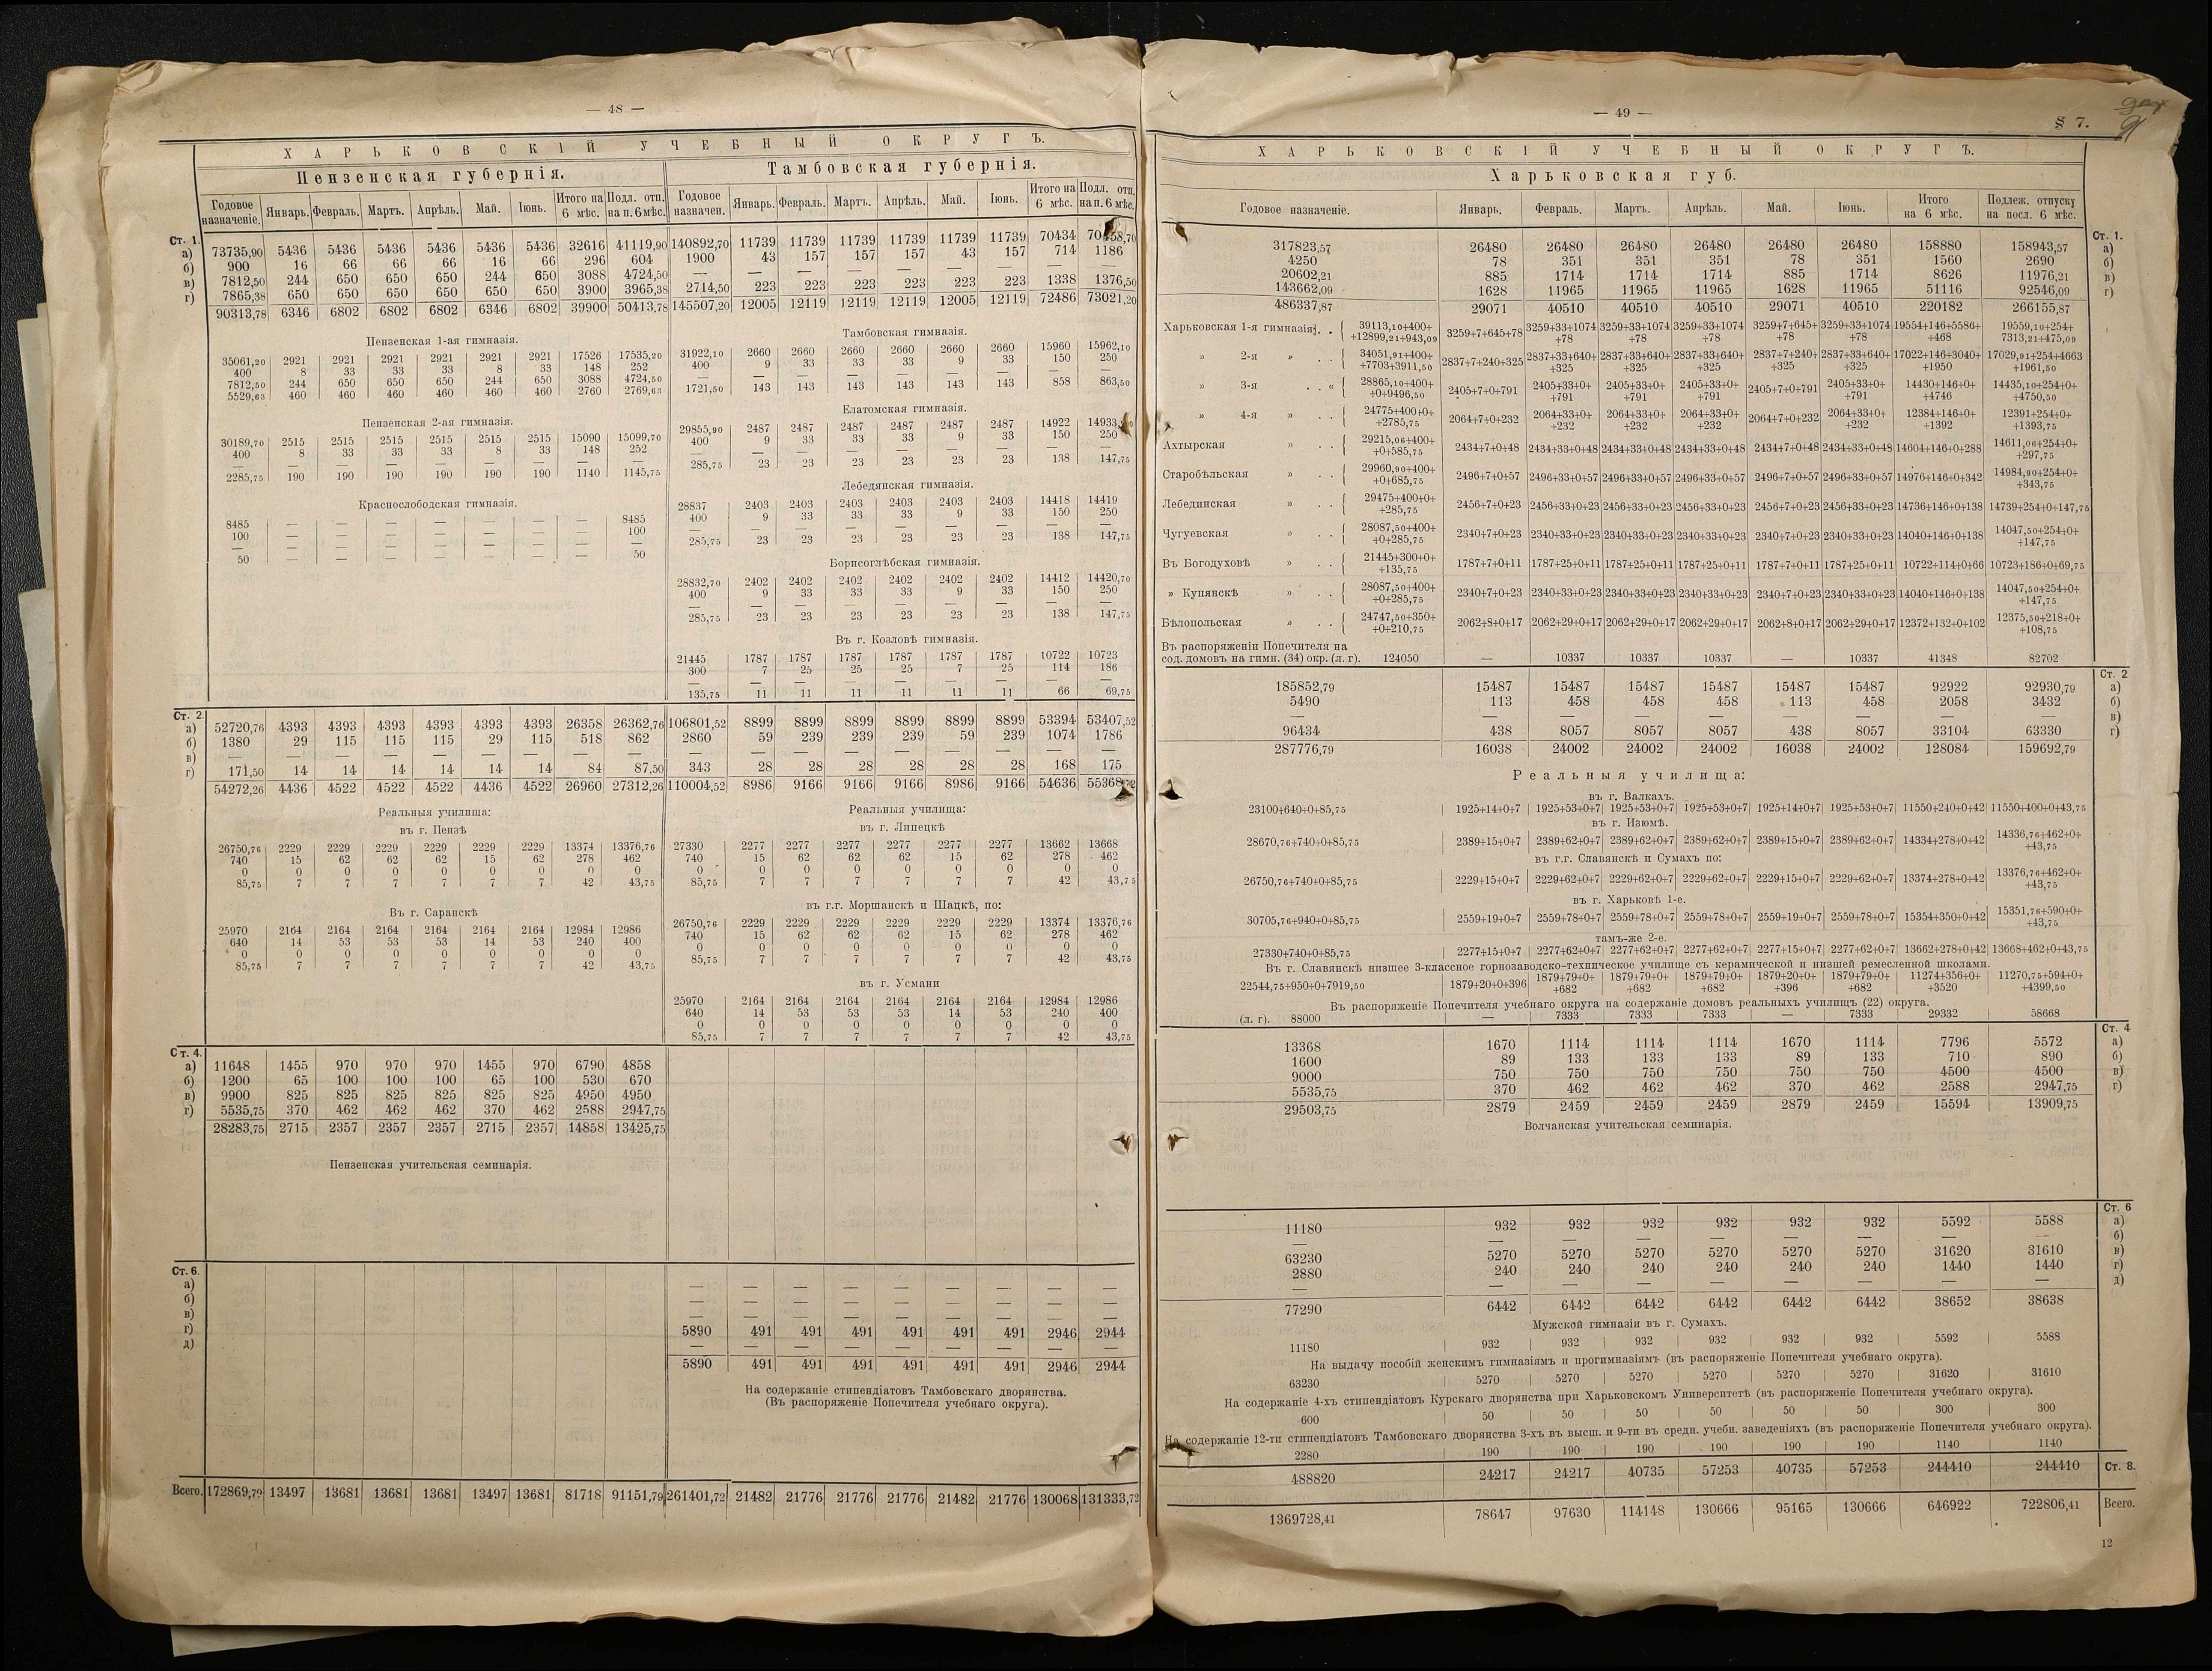 — 48 —
ХАРЬКОВСКІЙ УЧЕБНЫЙ ОКРУГЪ.
Пензенская губернія. Тамбовская губернія.
Годовое назначеніе. Январь. Февраль. Мартъ. Апрѣль. Май. Іюнь. Итого на 6 мѣс. Подл. отп. на п. 6 мѣс. Годовое назначен. Январь. Февраль. Мартъ. Апрѣль. Май. Іюнь. Итого на 6 мѣс. Подл. отп. на п. 6 мѣс.
Ст. 1.
а) 73735,90 5436 5436 5436 5436 5436 5436 32616 41119,90 140892,70 11739 11739 11739 11739 11739 11739 70434
б) 900 16 66 66 66 16 66 296 604 1900 43 157 157 157 43 157 714 1186
в) 7812,50 244 650 650 650 244 650 3088 4724,50 — — — — — — — — —
г) 7865,38 650 650 650 650 650 650 3900 3965,38 2714,50 223 223 223 223 223 223 1338 1376,50
90313,78 6346 6802 6802 6802 6346 6802 39900 50413,78 145507,20 12005 12119 12119 12119 12005 12119 72486 73021,20
Пензенская 1-ая гимназія.
35061,20 2921 2921 2921 2921 2921 2921 17526 17535,20
400 8 33 33 33 8 33 148 252
7812,50 244 650 650 650 244 650 3088 4724,50
5529,63 460 460 460 460 460 460 2760 2769,63
Пензенская 2-ая гимназія.
30189,70 2515 2515 2515 2515 2515 2515 15090 15099,70
400 8 33 33 33 8 33 148 252
— — — — — — — — —
2285,75 190 190 190 190 190 190 1140 1145,75
Краснослободская гимназія.
8485 — — — — — — — 8485
100 — — — — — — — 100
— — — — — — — — —
50 — — — — — — — 50
Тамбовская гимназія.
31922,10 2660 2660 2660 2660 2660 2660 15960 15962,10
400 9 33 33 33 9 33 150 250
— — — — — — — — —
1721,50 143 143 143 143 143 143 858 863,50
Елатомская гимназія.
29855,90 2487 2487 2487 2487 2487 2487 14922
400 9 33 33 33 9 33 150 250
— — — — — — — — —
285,75 23 23 23 23 23 23 138 147,75
Лебедянская гимназія.
28837 2403 2403 2403 2403 2403 2403 14418 14419
400 9 33 33 33 9 33 150 250
— — — — — — — — —
285,75 23 23 23 23 23 23 138 147,75
Борисоглѣбская гимназія.
28832,70 2402 2402 2402 2402 2402 2402 14412 14420,70
400 9 33 33 33 9 33 150 250
— — — — — — — — —
285,75 23 23 23 23 23 23 138 147,75
Въ г. Козловѣ гимназія.
21445 1787 1787 1787 1787 1787 1787 10722 10723
300 7 25 25 25 7 25 114 186
— — — — — — — — —
135,75 11 11 11 11 11 11 66 69,75
Ст. 2.
а) 52720,76 4393 4393 4393 4393 4393 4393 26358 26362,76 106801,52 8899 8899 8899 8899 8899 8899 53394 53407,52
б) 1380 29 115 115 115 29 115 518 862 2860 59 239 239 239 59 239 1074 1786
в) — — — — — — — — — — — — — — — — — —
г) 171,50 14 14 14 14 14 14 84 87,50 343 28 28 28 28 28 28 168 175
54272,26 4436 4522 4522 4522 4436 4522 26960 27312,26 110004,52 8986 9166 9166 9166 8986 9166 54636
Реальныя училища:
въ г. Пензѣ
26750,76 2229 2229 2229 2229 2229 2229 13374 13376,76
740 15 62 62 62 15 62 278 462
0 0 0 0 0 0 0 0 0
85,75 7 7 7 7 7 7 42 43,75
Въ г. Саранскѣ
25970 2164 2164 2164 2164 2164 2164 12984 12986
640 14 53 53 53 14 53 240 400
0 0 0 0 0 0 0 0 0
85,75 7 7 7 7 7 7 42 43,75
Реальныя училища:
въ г. Липецкѣ
27330 2277 2277 2277 2277 2277 2277 13662 13668
740 15 62 62 62 15 62 278 462
0 0 0 0 0 0 0 0 0
85,75 7 7 7 7 7 7 42 43,75
въ г.г. Моршанскѣ и Шацкѣ, по:
26750,76 2229 2229 2229 2229 2229 2229 13374 13376,76
740 15 62 62 62 15 62 278 462
0 0 0 0 0 0 0 0 0
85,75 7 7 7 7 7 7 42 43,75
въ г. Усмани
25970 2164 2164 2164 2164 2164 2164 12984 12986
640 14 53 53 53 14 53 240 400
0 0 0 0 0 0 0 0 0
85,75 7 7 7 7 7 7 42 43,75
Ст. 4.
а) 11648 1455 970 970 970 1455 970 6790 4858
б) 1200 65 100 100 100 65 100 530 670
в) 9900 825 825 825 825 825 825 4950 4950
г) 5535,75 370 462 462 462 370 462 2588 2947,75
28283,75 2715 2357 2357 2357 2715 2357 14858 13425,75
Пензенская учительская семинарія.
Ст. 6.
а) — — — — — — — — —
б) — — — — — — — — —
в) — — — — — — — — —
г) 5890 491 491 491 491 491 491 2946 2944
д) — — — — — — — — —
5890 491 491 491 491 491 491 2946 2944
На содержаніе стипендіатовъ Тамбовскаго дворянства.
(Въ распоряженіе Попечителя учебнаго округа).
Всего. 172869,79 13497 13681 13681 13681 13497 13681 81718 91151,79 261401,72 21482 21776 21776 21776 21482 21776 130068 131333,72
— 49 —
§ 7.
ХАРЬКОВСКІЙ УЧЕБНЫЙ ОКРУГЪ.
Харьковская губ.
Годовое назначеніе. Январь. Февраль. Мартъ. Апрѣль. Май. Іюнь. Итого на 6 мѣс. Подлеж. отпуску на посл. 6 мѣс.
Ст. 1.
317823,57 26480 26480 26480 26480 26480 26480 158880 158943,57 а)
4250 78 351 351 351 78 351 1560 2690 б)
20602,21 885 1714 1714 1714 885 1714 8626 11976,21 в)
143662,09 1628 11965 11965 11965 1628 11965 51116 92546,09 г)
486337,87 29071 40510 40510 40510 29071 40510 220182 266155,87
Харьковская 1-я гимназія. . { 39113,10+400+ +12899,21+943,09 3259+7+645+78 3259+33+1074 +78 3259+33+1074 +78 3259+33+1074 +78 3259+7+645+ +78 3259+33+1074 +78 19554+146+5586+ +468 19559,10+254+ 7313,21+475,09
» 2-я » . . { 34051,91+400+ +7703+3911,50 2837+7+240+325 2837+33+640+ +325 2837+33+640+ +325 2837+33+640+ +325 2837+7+240+ +325 2837+33+640+ +325 17022+146+3040+ +1950 17029,91+254+4663 +1961,50
» 3-я » . . { 28865,10+400+ +0+9496,50 2405+7+0+791 2405+33+0+ +791 2405+33+0+ +791 2405+33+0+ +791 2405+7+0+791 2405+33+0+ +791 14430+146+0+ +4746 14435,10+254+0+ +4750,50
» 4-я » . . { 24775+400+0+ +2785,75 2064+7+0+232 2064+33+0+ +232 2064+33+0+ +232 2064+33+0+ +232 2064+7+0+232 2064+33+0+ +232 12384+146+0+ +1392 12391+254+0+ +1393,75
Ахтырская » . . { 29215,06+400+ +0+585,75 2434+7+0+48 2434+33+0+48 2434+33+0+48 2434+33+0+48 2434+7+0+48 2434+33+0+48 14604+146+0+288 14611,06+254+0+ +297,75
Старобѣльская » . . { 29960,90+400+ +0+685,75 2496+7+0+57 2496+33+0+57 2496+33+0+57 2496+33+0+57 2496+7+0+57 2496+33+0+57 14976+146+0+342 14984,90+254+0+ +343,75
Лебединская » . . { 29475+400+0+ +285,75 2456+7+0+23 2456+33+0+23 2456+33+0+23 2456+33+0+23 2456+7+0+23 2456+33+0+23 14736+146+0+138 14739+254+0+147,75
Чугуевская » . . { 28087,50+400+ +0+285,75 2340+7+0+23 2340+33+0+23 2340+33+0+23 2340+33+0+23 2340+7+0+23 2340+33+0+23 14040+146+0+138 14047,50+254+0+ +147,75
Въ Богодуховѣ » . . { 21445+300+0+ +135,75 1787+7+0+11 1787+25+0+11 1787+25+0+11 1787+25+0+11 1787+7+0+11 1787+25+0+11 10722+114+0+66 10723+186+0+69,75
» Купянскѣ » . . { 28087,50+400+ +0+285,75 2340+7+0+23 2340+33+0+23 2340+33+0+23 2340+33+0+23 2340+7+0+23 2340+33+0+23 14040+146+0+138 14047,50+254+0+ +147,75
Бѣлопольская » . . { 24747,50+350+ +0+210,75 2062+8+0+17 2062+29+0+17 2062+29+0+17 2062+29+0+17 2062+8+0+17 2062+29+0+17 12372+132+0+102 12375,50+218+0+ +108,75
Въ распоряженіи Попечителя на
сод. домовъ на гимн. (34) окр. (л. г). 124050 — 10337 10337 10337 — 10337 41348 82702
Ст. 2
185852,79 15487 15487 15487 15487 15487 15487 92922 92930,79 а)
5490 113 458 458 458 113 458 2058 3432 б)
— — — — — — — — — в)
96434 438 8057 8057 8057 438 8057 33104 63330 г)
287776,79 16038 24002 24002 24002 16038 24002 128084 159692,79
Реальныя училища:
въ г. Валкахъ.
23100+640+0+85,75 1925+14+0+7 1925+53+0+7 1925+53+0+7 1925+53+0+7 1925+14+0+7 1925+53+0+7 11550+240+0+42 11550+400+0+43,75
въ г. Изюмѣ.
28670,76+740+0+85,75 2389+15+0+7 2389+62+0+7 2389+62+0+7 2389+62+0+7 2389+15+0+7 2389+62+0+7 14334+278+0+42 14336,76+462+0+ +43,75
въ г.г. Славянскѣ и Сумахъ по:
26750,76+740+0+85,75 2229+15+0+7 2229+62+0+7 2229+62+0+7 2229+62+0+7 2229+15+0+7 2229+62+0+7 13374+278+0+42 13376,76+462+0+ +43,75
въ г. Харьковѣ 1-е.
30705,76+940+0+85,75 2559+19+0+7 2559+78+0+7 2559+78+0+7 2559+78+0+7 2559+19+0+7 2559+78+0+7 15354+350+0+42 15351,76+590+0+ +43,75
тамъ-же 2-е.
27330+740+0+85,75 2277+15+0+7 2277+62+0+7 2277+62+0+7 2277+62+0+7 2277+15+0+7 2277+62+0+7 13662+278+0+42 13668+462+0+43,75
Въ г. Славянскѣ низшее 3-классное горнозаводско-техническое училище съ керамической и низшей ремесленной школами.
22544,75+950+0+7919,50 1879+20+0+396 1879+79+0+ +682 1879+79+0+ +682 1879+79+0+ +682 1879+20+0+ +396 1879+79+0+ +682 11274+356+0+ +3520 11270,75+594+0+ +4399,50
Въ распоряженіе Попечителя учебнаго округа на содержаніе домовъ реальныхъ училищъ (22) округа.
(л. г). 88000 — 7333 7333 7333 — 7333 29332 58668
Ст. 4
13368 1670 1114 1114 1114 1670 1114 7796 5572 а)
1600 89 133 133 133 89 133 710 890 б)
9000 750 750 750 750 750 750 4500 4500 в)
5535,75 370 462 462 462 370 462 2588 2947,75 г)
29503,75 2879 2459 2459 2459 2879 2459 15594 13909,75
Волчанская учительская семинарія.
Ст. 6
11180 932 932 932 932 932 932 5592 5588 а)
— — — — — — — — — б)
63230 5270 5270 5270 5270 5270 5270 31620 31610 в)
2880 240 240 240 240 240 240 1440 1440 г)
— — — — — — — — — д)
77290 6442 6442 6442 6442 6442 6442 38652 38638
Мужской гимназіи въ г. Сумахъ.
11180 932 932 932 932 932 932 5592 5588
На выдачу пособій женскимъ гимназіямъ и прогимназіямъ (въ распоряженіе Попечителя учебнаго округа).
63230 5270 5270 5270 5270 5270 5270 31620 31610
На содержаніе 4-хъ стипендіатовъ Курскаго дворянства при Харьковскомъ Университетѣ (въ распоряженіе Попечителя учебнаго округа).
600 50 50 50 50 50 50 300 300
На содержаніе 12-ти стипендіатовъ Тамбовскаго дворянства 3-хъ въ высш. и 9-ти въ средн. учебн. заведеніяхъ (въ распоряженіе Попечителя учебнаго округа).
2280 190 190 190 190 190 190 1140 1140
488820 24217 24217 40735 57253 40735 57253 244410 244410 Ст. 8.
1369728,41 78647 97630 114148 130666 95165 130666 646922 722806,41 Всего.
12